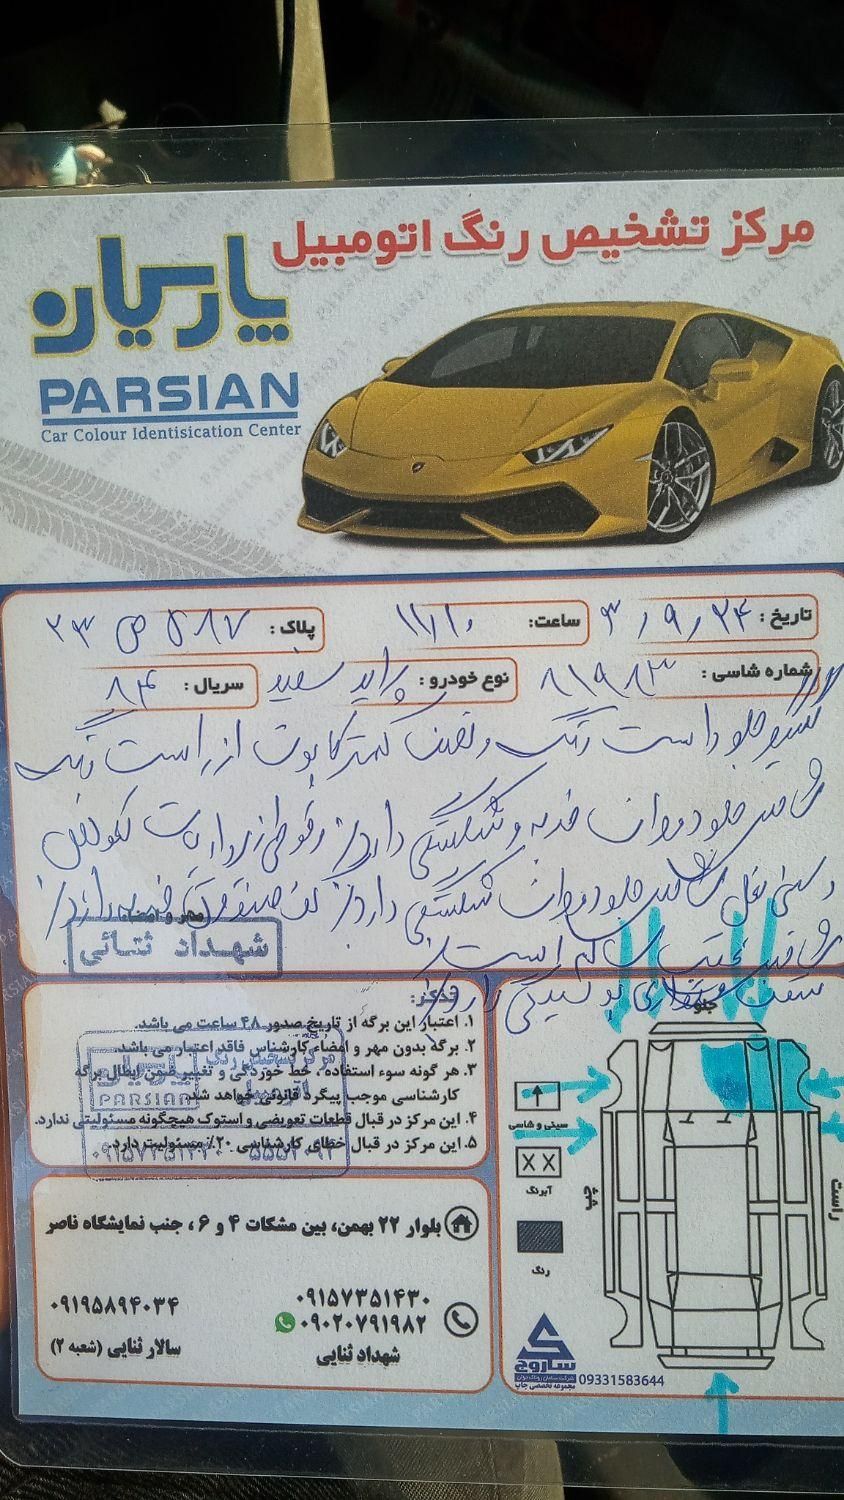 مرکز تشخیص رنگ اتومبیل
پارسیان
PARSIAN
Car Colour Identisication Center
تاریخ : ۳/۹/۲۴ ساعت: ۱۱/۱۰ پلاک : ۵۸۷ ص ۲۳
شماره شاسی : ۸۱۹۸۳ نوع خودرو : پراید سفید سریال : ۸۴
گلگیر جلو راست رنگ و نصف کمتر کاپوت از راست رنگ
شاسی جلو دو طرف ضربه و شکستگی دارد
و سینی بغل شاسی جلو شکستگی دارد کف صندوق ضربه دارد
شاسی عقب سالم است
سقف پوسیدگی دارد
مهر و امضاء
شهداد ثنائی
تذکر:
۱. اعتبار این برگه از تاریخ صدور ۴۸ ساعت می باشد.
۲. برگه بدون مهر و امضاء کارشناس فاقد اعتبار می باشد.
۳. هر گونه سوء استفاده ، خط خوردگی و تغییر ضمن ابطال برگه
کارشناسی موجب پیگرد قانونی خواهد شد.
۴. این مرکز در قبال قطعات تعویضی و استوک هیچگونه مسئولیتی ندارد.
۵. این مرکز در قبال خطای کارشناسی ۲۰٪ مسئولیت دارد.
مرکز تشخیص رنگ
اتومبیل
پارسیان
PARSIAN
جلو
سینی و شاسی
آبرنگ
رنگ
چپ
راست
بلوار ۲۲ بهمن، بین مشکات ۴ و ۶ ، جنب نمایشگاه ناصر
۰۹۱۵۷۳۵۱۴۳۰
۰۹۰۲۰۷۹۱۹۸۲
شهداد ثنایی
۰۹۱۹۵۸۹۴۰۳۴
سالار ثنایی (شعبه ۲)
ساروج
مجموعه تخصصی چاپ
09331583644